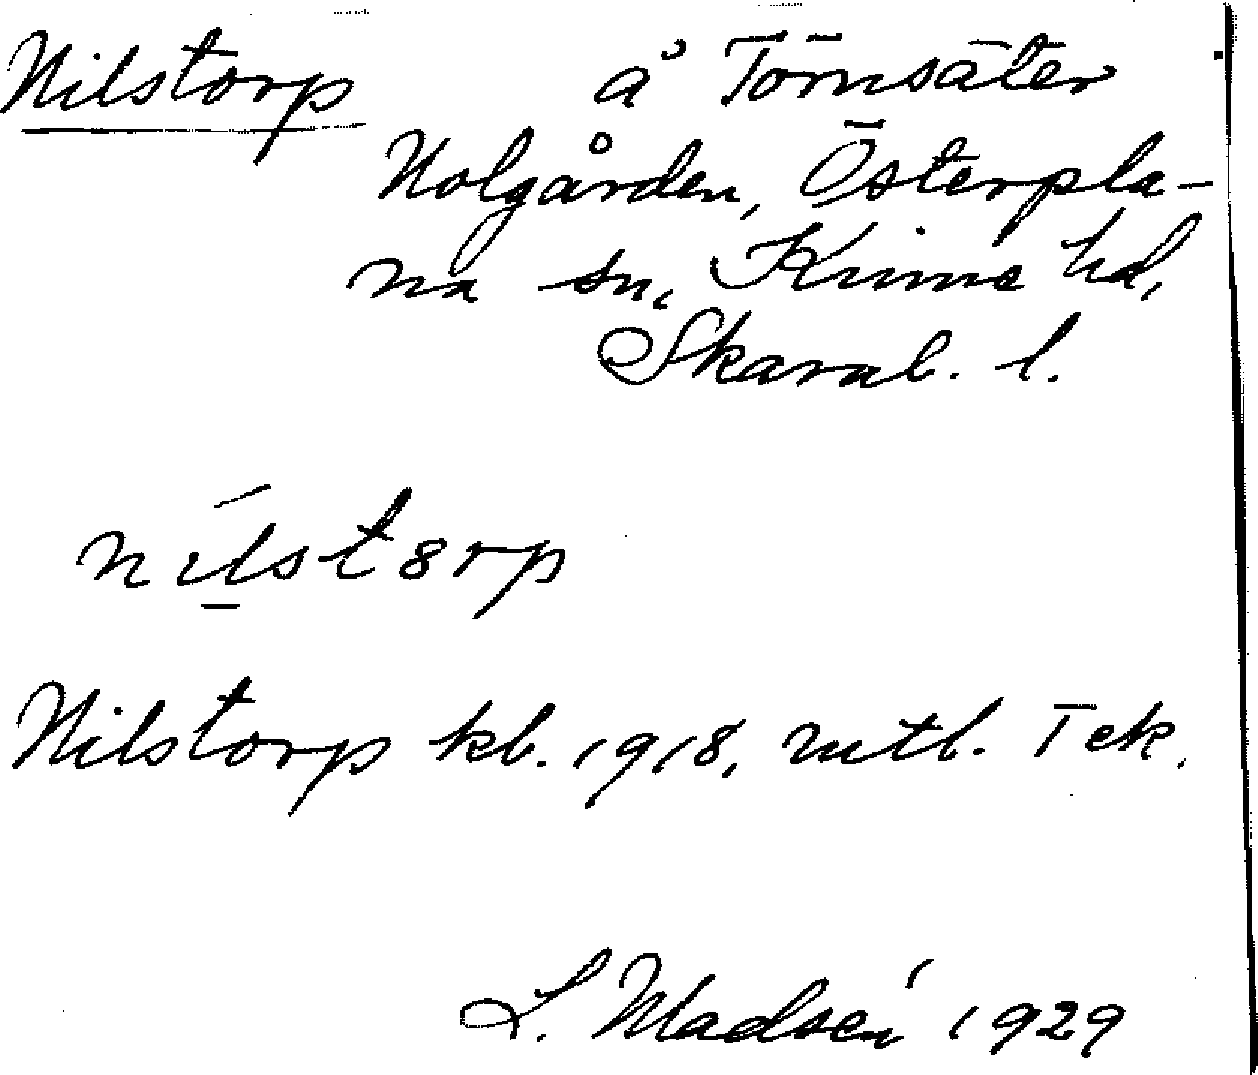 Nilstorp å Törnsäter
Nolgården, Österpla-
na sn, Kinne hd,
Skarab. l.
nı́lst8rp
Nilstorp kb. 1918, mtl. Tek.
L. Madsén 1929